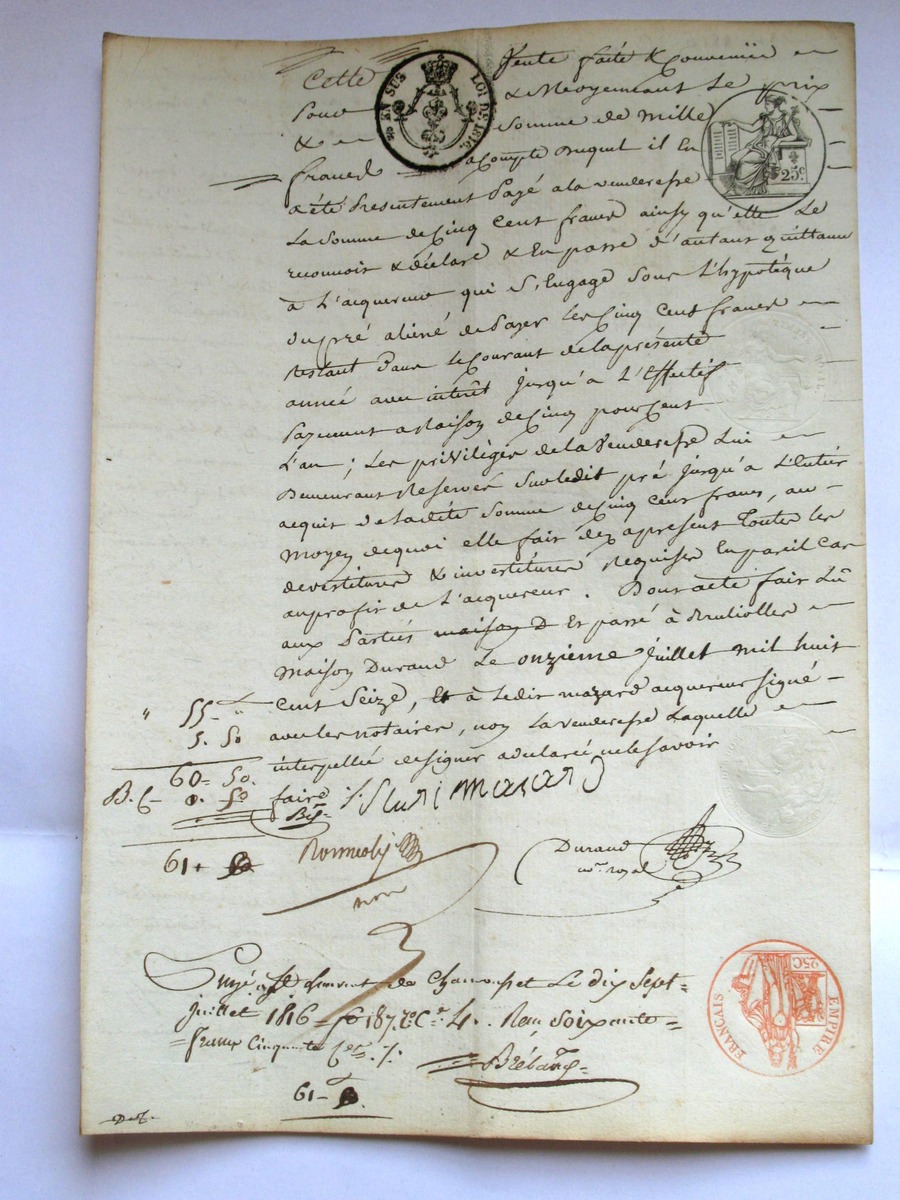 Cette vente faite & Convenüe
pour & Moyennant Le prix
& somme de Mille
francs acompte duquel il En
a été Presentement Payé a la venderesse
La somme de Cinq Cent francs ainsy qu'elle Le
reconnoit & déclare & En passe d'autant quittance
à L'acquereur qui S'Engage sous L'hypotéque
du pré aliené de Payer les Cinq Cent francs
restant dans le Courant de la présente
année avec intérêt jusqu'à L'Effectif
Payement a Raison de Cinq pour Cent
L'an ; Les priviléges de la Venderesse Lui
Demeurant Reservés Sur ledit pré jusqu'à L'Entier
acquit de la dite Somme de Cinq Cent francs, au
moyen de quoi elle fait dez apresent Toutes les
devestitures & investitures Requises En pareil Cas
au profit de L'acquereur. Dont acte fait Lû
aux Parties maison D Et passé à
Maison Durand Le onzième juillet mil huit
Cent Seize, Et à Ledit mazard acquereur signé
avec les notaires, non La venderesse Laquelle
interpellée de signer a declaré ne le savoir
faire
55 -
5. 50
60 - 50.
0. 50
61 +
Durand
nre. royal
juillet 1816 fo 187 Co. Ce. 4. Reçu Soixante
francs Cinquante Ces.
61 -
EN SUS LOI DE 1816.
25c.
EMPIRE FRANÇAIS
25C